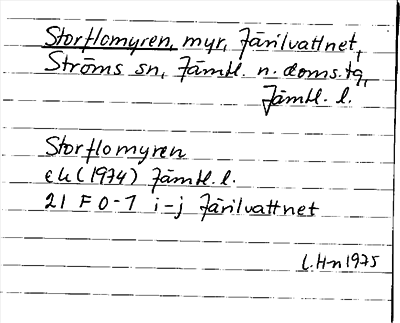 Storflomyren, myr, Järilvattnet,
Ströms sn, Jämtl. n. doms. tg,
Jämtl. l.
Storflomyren
ek (1974) Jämtl. l.
21 F 0-1 i-j Järilvattnet
l. H-n 1975